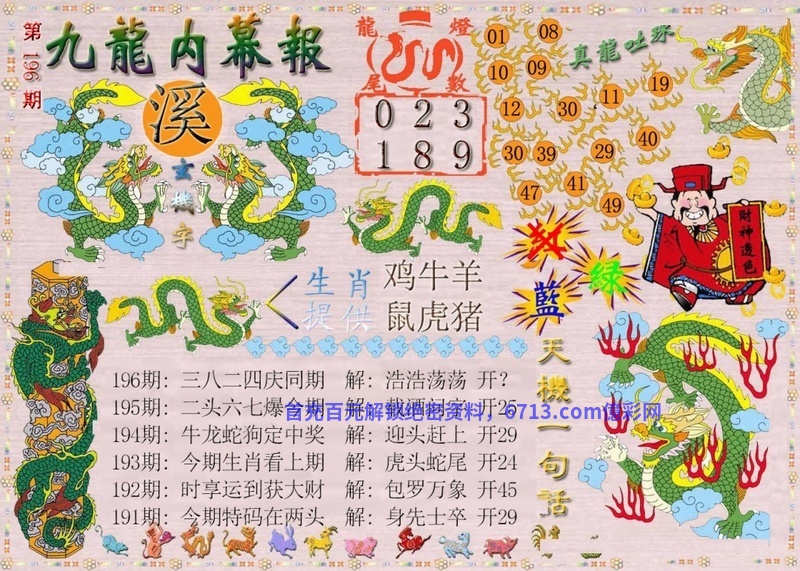 第196期
九龍内幕報
溪
玄機字
龍燈
尾數
0 2 3
1 8 9
01 08
10 09
12 30 11 19
30 39 29 40
47 41 49
真龍吐珠
財神透色
红
藍
綠
生肖
提供
鸡牛羊
鼠虎猪
196期: 三八二四庆同期 解: 浩浩荡荡 开?
195期: 二头六七爆今期 解: 载酒问字 开25
首充百元解锁绝密资料，6713.com
194期: 牛龙蛇狗定中奖 解: 迎头赶上 开29
193期: 今期生肖看上期 解: 虎头蛇尾 开24
192期: 时享运到获大财 解: 包罗万象 开45
191期: 今期特码在两头 解: 身先士卒 开29
天機一句話